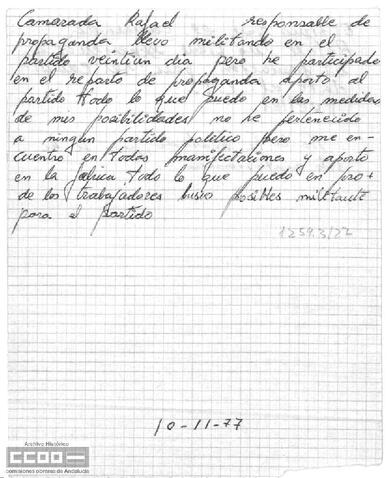 Camarada Rafael responsable de
propaganda llevo militando en el
partido veintiun dia pero he participado
en el reparto de propaganda aporto al
partido todo lo que puedo en las medidas
de mis posibilidades no he pertenecido
a ningun partido politico pero me en-
cuentro en todas manifestaciones y aporto
en la fabrica todo lo que puedo en pro+
de los trabajadores busco posibles militante
para el partido
1259.3/22
10-11-77
Archivo Histórico
CCOO
comisiones obreras de Andalucía